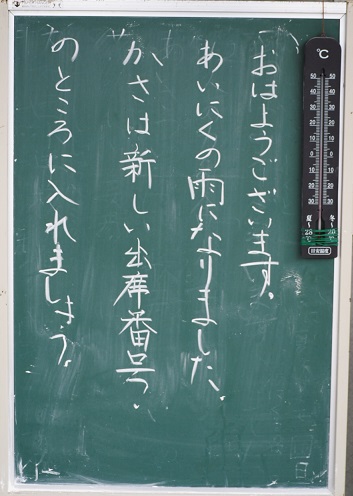 おはようございます。
あいにくの雨になりました。
かさは新しい出席番号
のところに入れましょう。
℃
50 50
40 40
30 30
20 20
10 10
0 0
10 10
20 20
30 30
夏 冬
28 20
日